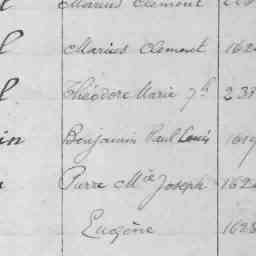 Marius Clément
Marius Clement 162
Théodore Marie Jh 233
in Benjamin Paul Louis 1619
Pierre Mie Joseph 162
Eugène 1628